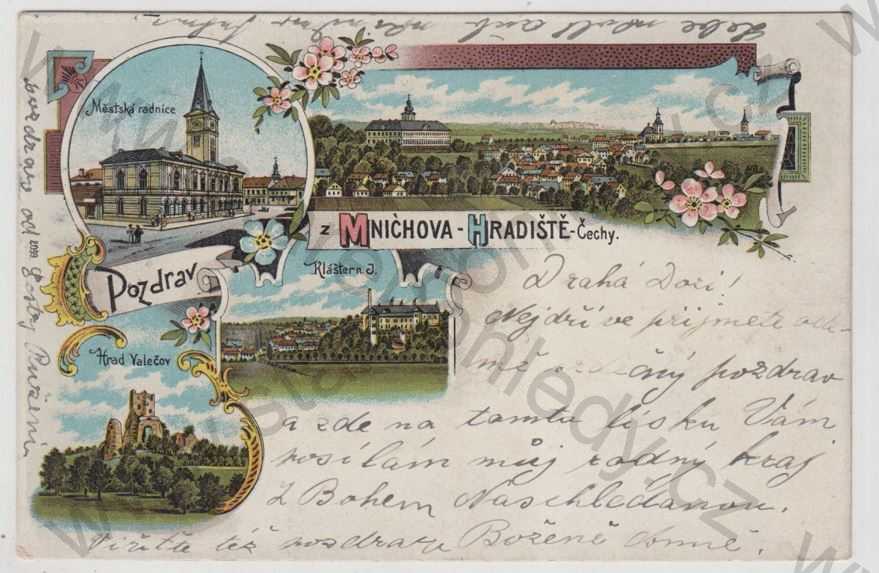 Městská radnice
Pozdrav
z MNICHOVA-HRADIŠTĚ-Čechy.
Klášter n. J.
Hrad Valečov
Drahá Dorí!
Nejdříve přijměte ode-
mě srdečný pozdrav
a zde na tomto lísku Vám
posílám můj rodný kraj
Z Bohem Naschledanou.
též pozdravu Boženě
pozdrav od